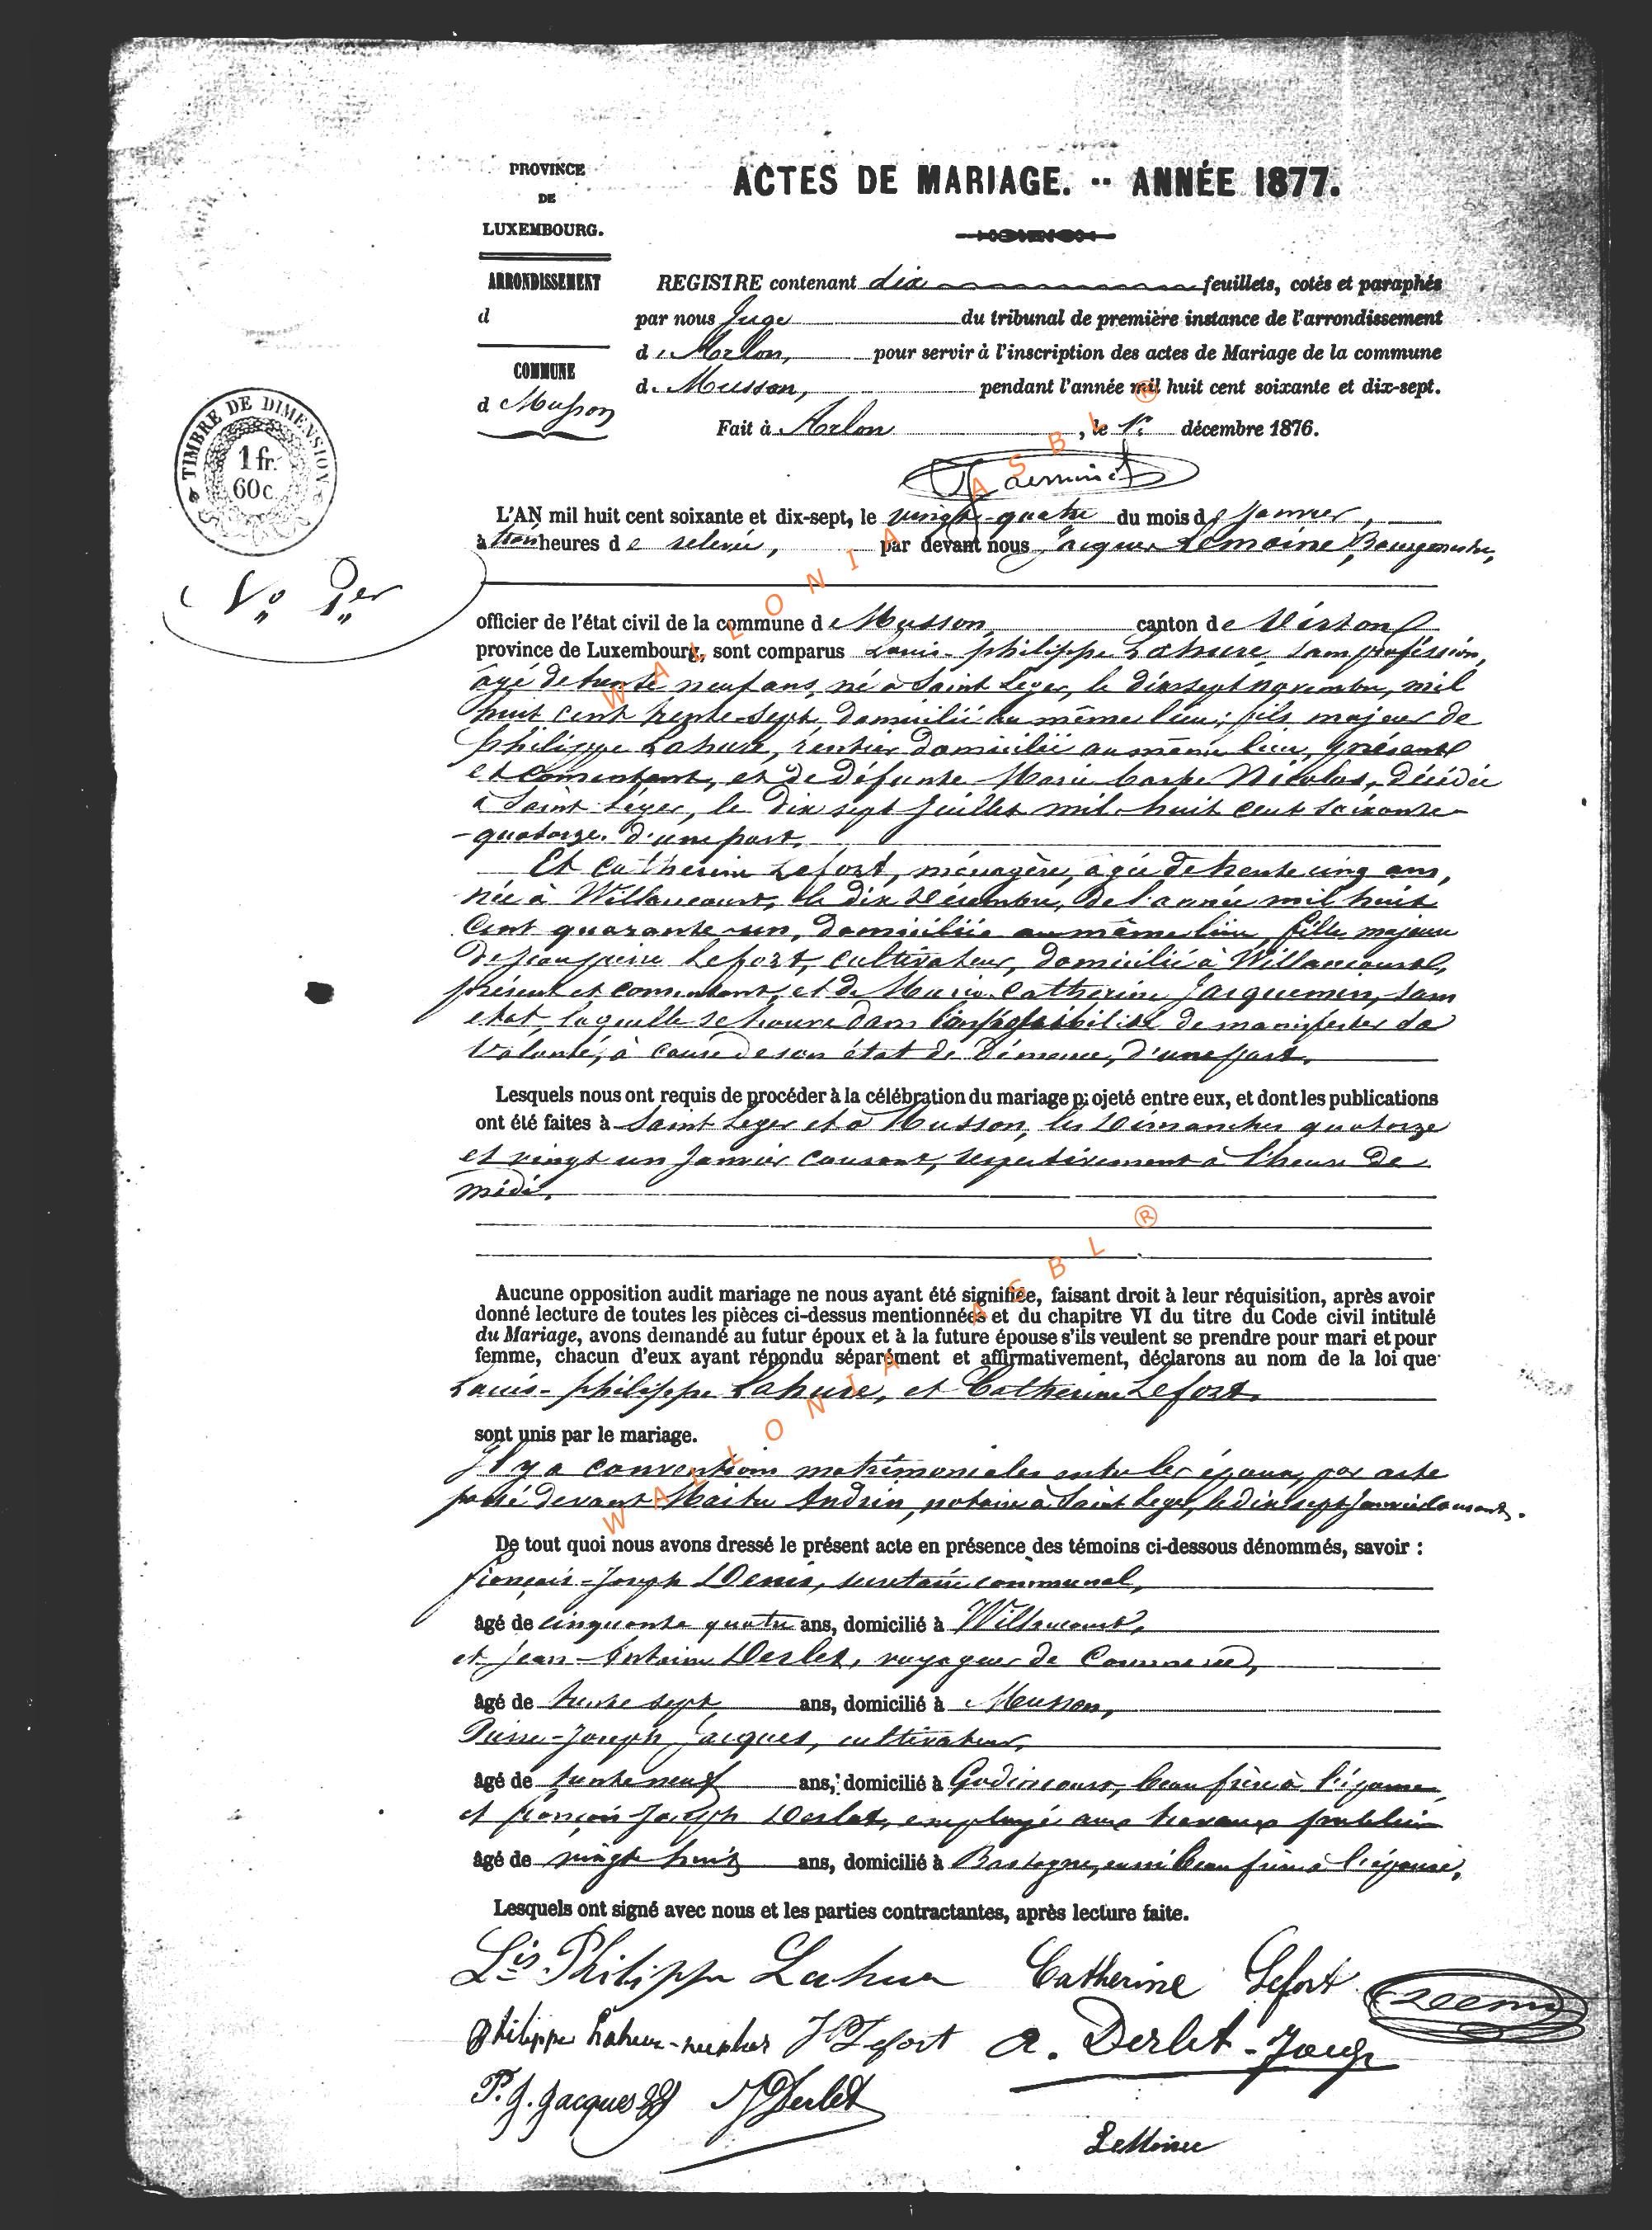 PROVINCE
DE
LUXEMBOURG.
ACTES DE MARIAGE. -- ANNÉE 1877.
ARRONDISSEMENT
d
COMMUNE
d Musson
REGISTRE contenant dix feuillets, cotés et paraphés
par nous Juge du tribunal de première instance de l'arrondissement
d'Arlon, pour servir à l'inscription des actes de Mariage de la commune
de Musson, pendant l'année mil huit cent soixante et dix-sept.
Fait à Arlon , le 1r décembre 1876.
TIMBRE DE DIMENSION
1 fr.
60 c.
N° 1er
L'AN mil huit cent soixante et dix-sept, le vingt-quatre du mois de Janvier,
à trois heures de relevée, par devant nous Jacques Lemoine, Bourgmestre,
officier de l'état civil de la commune de Musson, canton de Virton
province de Luxembourg, sont comparus Louis-philippe Lahure, sans profession,
âgé de trente neuf ans, né à Saint Léger, le dix sept novembre, mil
huit cent trente-sept, domicilié au même lieu; fils majeur de
philippe Lahure, rentier domicilié au même lieu, présent
et consentant, et de défunte Marie Barbe Nicolas, décédée
à Saint-Léger, le dix sept Juillet mil-huit cent soixante-
-quatorze. d'une part.
Et Catherine Lefort, ménagère, âgée de trente cinq ans,
née à Willancourt, le dix Décembre, de l'année mil huit
cent quarante-un, domiciliée au même lieu, fille majeure
de Jean pierre Lefort, cultivateur, domicilié à Willancourt,
présent et consentant, et de Marie-Catherine Jacquemin, sans
état, laquelle se trouve dans l'impossibilité de manifester sa
volonté, à cause de son état de Démence, d'une part.
Lesquels nous ont requis de procéder à la célébration du mariage projeté entre eux, et dont les publications
ont été faites à Saint Leger et à Musson, les Dimanches quatorze
et vingt un Janvier courant, respectivement à l'heure de
midi.
Aucune opposition audit mariage ne nous ayant été signifiée, faisant droit à leur réquisition, après avoir
donné lecture de toutes les pièces ci-dessus mentionnées et du chapitre VI du titre du Code civil intitulé
du Mariage, avons demandé au futur époux et à la future épouse s'ils veulent se prendre pour mari et pour
femme, chacun d'eux ayant répondu séparément et affirmativement, déclarons au nom de la loi que
Louis-philippe Lahure, et Catherine Lefort.
sont unis par le mariage.
Il y a conventions matrimoniales entre les époux, par acte
passé devant Maitre Andrin, notaire à Saint Leger, le dix sept Janvier courant.
De tout quoi nous avons dressé le présent acte en présence des témoins ci-dessous dénommés, savoir :
françois-Joseph Denis, secretaire communal,
âgé de cinquante quatre ans, domicilié à Willancourt,
et Jean-Antoine Derlet, voyageur de Commerce,
âgé de trente sept ans, domicilié à Musson,
Pierre-Joseph Jacques, cultivateur,
âgé de trente neuf ans, domicilié à Godincourt, beau frère à l'épouse,
et françois Joseph Derlet, employé aux travaux publics
âgé de vingt huit ans, domicilié à Bastogne, aussi beau frère à l'épouse.
Lesquels ont signé avec nous et les parties contractantes, après lecture faite.
Lis Philippe Lahure Catherine Lefort
philippe Lahure- JP Lefort A. Derlet-
P. J. Jacques FJ Derlet
Lemoine
WALLONIA ASBL ®
WALLONIA ASBL ®